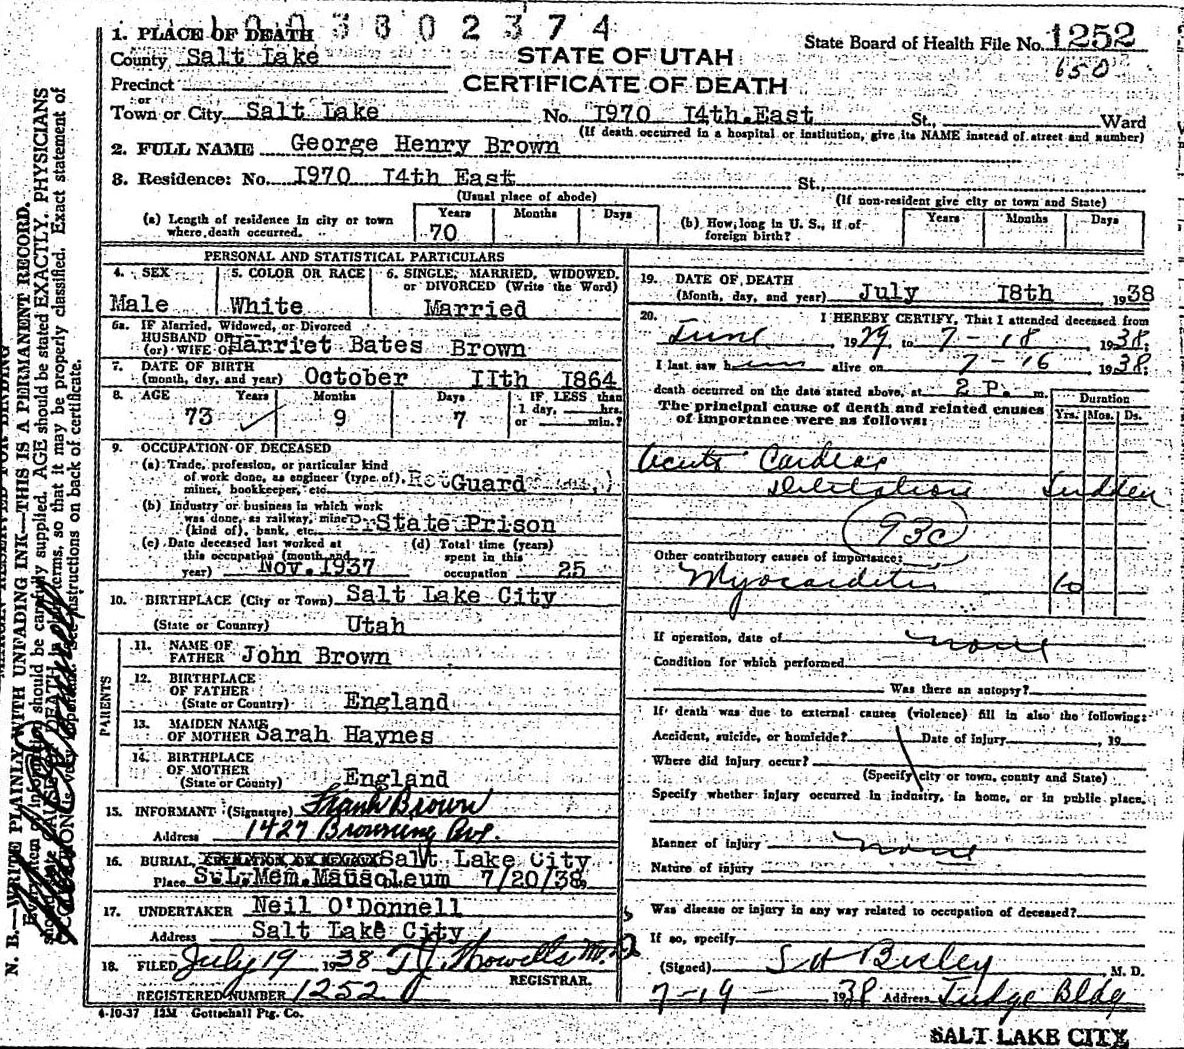 1003802374
1. PLACE OF DEATH
County Salt Lake
STATE OF UTAH
CERTIFICATE OF DEATH
State Board of Health File No. 1252
650
Precinct
or
Town or City Salt Lake No. 1970 14th East St., Ward
(If death occurred in a hospital or institution, give its NAME instead of street and number)
2. FULL NAME George Henry Brown
3. Residence: No. 1970 14th East St.,
(Usual place of abode) (If non-resident give city or town and State)
(a) Length of residence in city or town where death occurred. Years 70 Months Days
(b) How long in U. S., if of foreign birth? Years Months Days
PERSONAL AND STATISTICAL PARTICULARS
4. SEX Male
5. COLOR OR RACE White
6. SINGLE, MARRIED, WIDOWED, or DIVORCED (Write the Word) Married
6a. IF Married, Widowed, or Divorced
HUSBAND OF
(or) WIFE OF Harriet Bates Brown
7. DATE OF BIRTH
(month, day, and year) October 11th 1864
8. AGE Years 73 Months 9 Days 7 IF LESS than 1 day, hrs. or min.?
9. OCCUPATION OF DECEASED
(a) Trade, profession, or particular kind
of work done, as engineer (type of), Ret Guard
miner, bookkeeper, etc.
(b) Industry or business in which work
was done, as railway, mine State Prison
(kind of), bank, etc.
(c) Date deceased last worked at
this occupation (month and
year) Nov. 1937
(d) Total time (years)
spent in this
occupation 25
10. BIRTHPLACE (City or Town) Salt Lake City
(State or Country) Utah
PARENTS
11. NAME OF FATHER John Brown
12. BIRTHPLACE OF FATHER
(State or Country) England
13. MAIDEN NAME OF MOTHER Sarah Haynes
14. BIRTHPLACE OF MOTHER
(State or Country) England
15. INFORMANT (Signature) Frank Brown
Address 1427 Browning Ave.
16. BURIAL, Salt Lake City
Place S.L. Mem. Mausoleum 7/20/38
17. UNDERTAKER Neil O'Donnell
Address Salt Lake City
18. FILED July 19 1938 T J. Howells M.D.
REGISTRAR.
REGISTERED NUMBER 1252
4-10-37 12M Gottschall Ptg. Co.
19. DATE OF DEATH
(Month, day, and year) July 18th 1938
20. I HEREBY CERTIFY, That I attended deceased from
June 1929, to 7-18 1938;
I last saw him alive on 7-16 1938;
death occurred on the date stated above, at 2 P. m.
The principal cause of death and related causes
of importance were as follows:
Duration
Yrs. Mos. Ds.
Acute Cardiac
Dilitation Sudden
93c
Other contributory causes of importance:
Myocarditis 10
If operation, date of none
Condition for which performed
Was there an autopsy?
If death was due to external causes (violence) fill in also the following:
Accident, suicide, or homicide? Date of injury , 19
Where did injury occur?
(Specify city or town, county and State)
Specify whether injury occurred in industry, in home, or in public place.
Manner of injury none
Nature of injury
Was disease or injury in any way related to occupation of deceased?
If so, specify
(Signed) S H Besley M. D.
7-19- 1938 Address Judge Bldg
SALT LAKE CITY
N. B.—WRITE PLAINLY WITH UNFADING INK—THIS IS A PERMANENT RECORD.
Every item of information should be carefully supplied. AGE should be stated EXACTLY. PHYSICIANS
should state CAUSE OF DEATH in plain terms, so that it may be properly classified. Exact statement of
OCCUPATION is very important. See instructions on back of certificate.